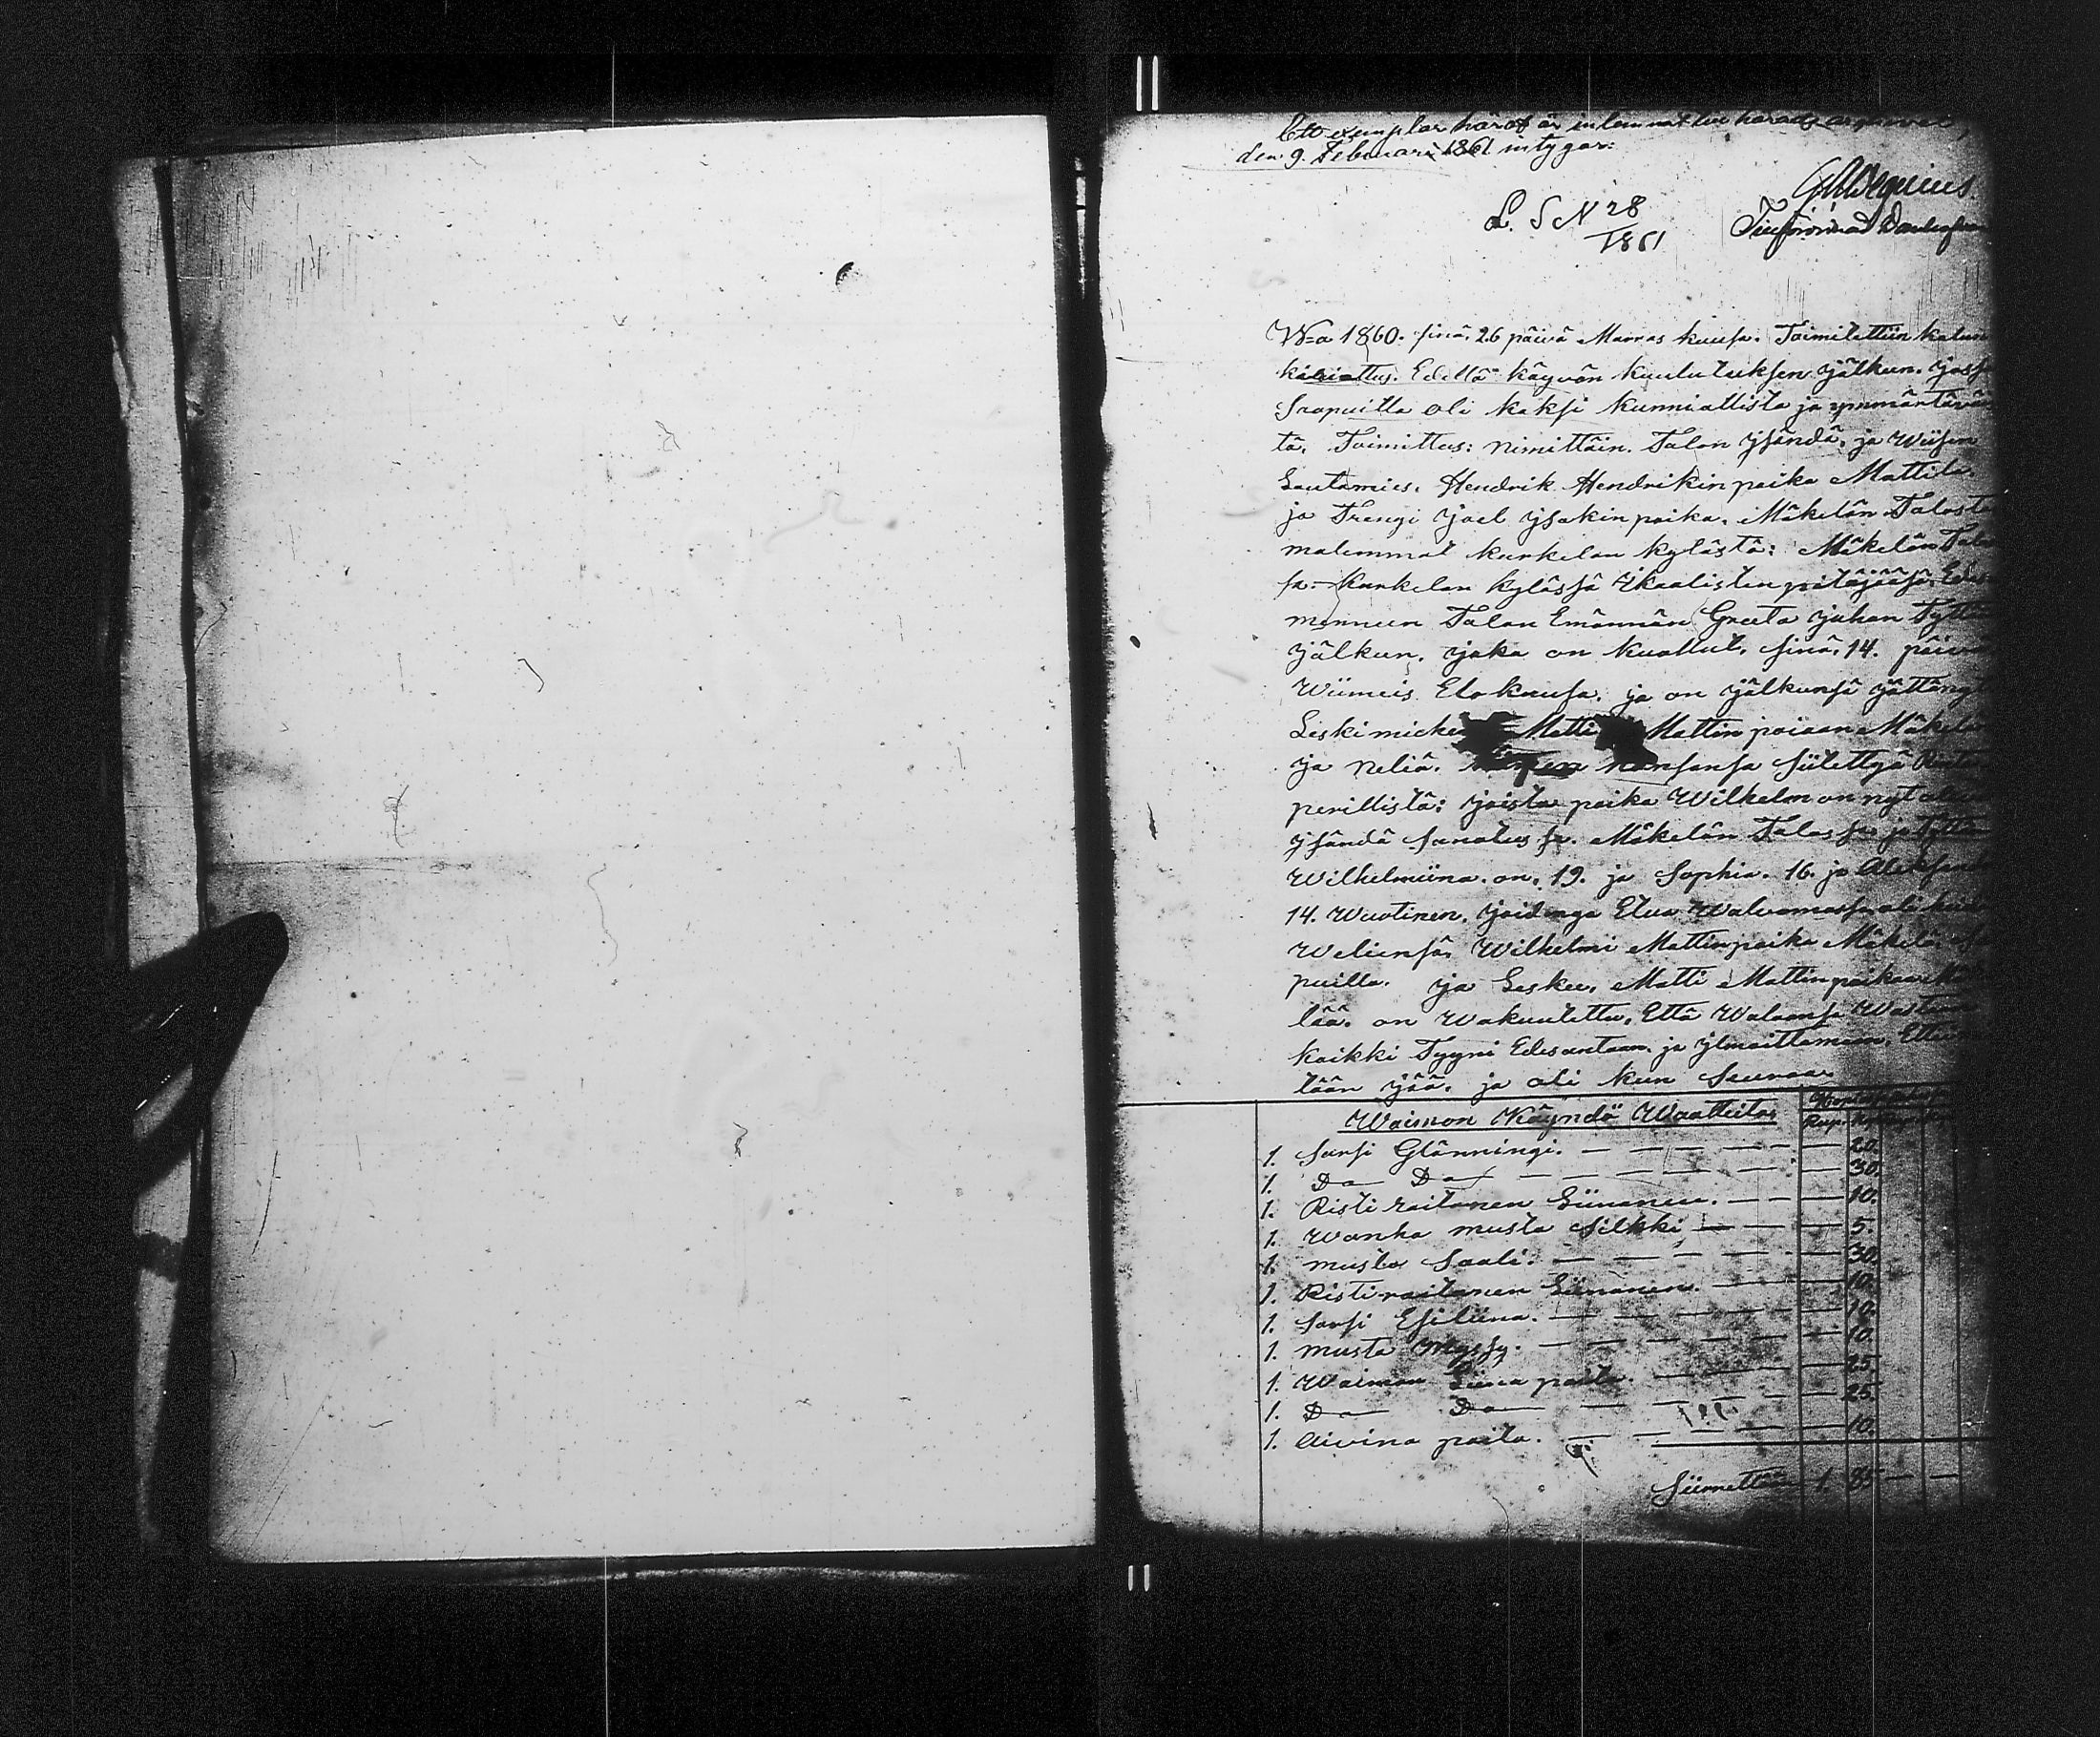 Ett exemplar häraf är inlemnat till härads arghivet,
den 9. Februari 1861 intygar:
L. S N 28
1861
W=a 1860. sinä. 26 päivä Marras kuusa. Toimitettiin kalun
kirioittus. Edellä käyvän kuulutuksen jälkun. Jossa
Srapuilla oli kaksi kunniallista ja ymmärtävä
tä. Toimittus: nimittäin. Talon ysändä, ja Wiisen
Lautamies. Hendrik Hendrikin poika Mattila.
ja Trengi Joel Ysakin poika. Mäkelän Talosta
molemmat kurkelan kylästä: Mäkelän Talo
sa: Kurkelan kylässä Ikaalisten pitäjääsä. Edes
menneen Talon Emännän Greeta Juhan Tyttä
Jälkun. Joka on kuollut. sinä. 14. päivä
Wiimeis Elokuusa. ja on jälkunsä jättänyt
Leskimiehe Matti Mattin poiaan Mäkelä
ja neliä. kansansa siitettyä Rinta
perillistä: joista poika Wilhelm on nyt
ysändä sanotus sa. Mäkelän Talossa ja Tyttä
Wilhelmiina. on. 19. ja Sophia. 16. ja Aleksand
14. Wuotinen. joidenga Etua Walvomassa oli
Weliensä Wilhelmi Mattinpoika Mäkelä.
puilla. ja Leskee. Matti Mattinpoikaa Mäke
lää. on Wakuutettu. Että Walansa Wastuun
kaikki Tyyni Edesantaan. ja ylmoittamaan. Ettei
lään jää. ja oli kun Seuraa
Waimon Käyndö Waatteita Rup. Kop
1. Sarsi Glänningi. — 20.
1. Do Do — 30.
1. Risti raitanen Liinanen. — 10.
1. Wanha musta Silkki — 5.
1. musta Saali. — 30.
1. Ristiraitanen Liinanen. — 10.
1. Sarsi Esiliina. — 10.
1. musta Myssy. — 10.
1. Waimon Liina paita. — 25.
1. Do Do — 25.
1. Aivina paita. — 10.
Siirrettään 1. 85 — —